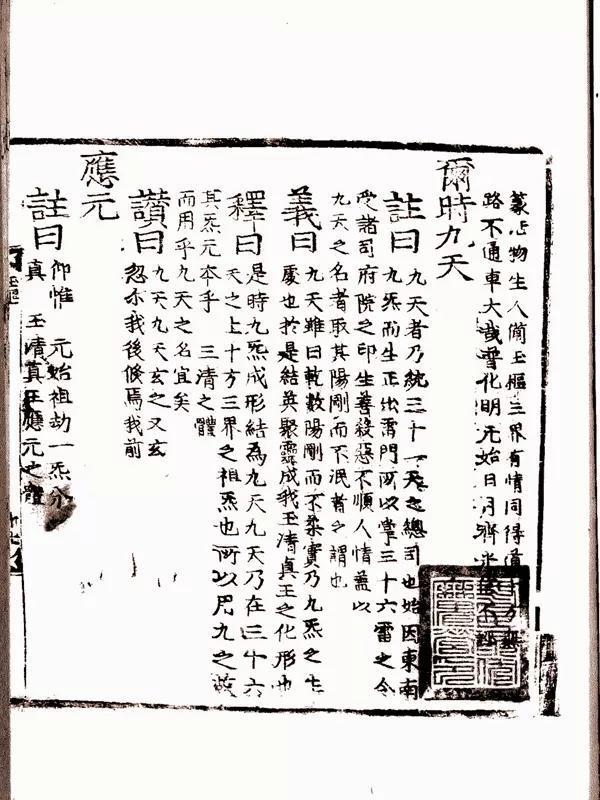 篆𠫵物生人倫玉樞三界有情同得道
路不通車大哉雷化明元始日月齊
爾時九天
註曰九天者乃統三十一天之總司也始因東南
九炁而生正出雷門所以掌三十六雷之令
受諸司府院之印生善殺惡不順人情蓋以
九天之名者取其陽剛而不泯者之謂也
義曰九天雖曰乾數陽剛而不柔實乃九炁之生
慶也於是結英聚靈成我玉清真王之化形也
釋曰是時九炁成形結為九天九天乃在三十六
天之上十方三界之祖炁也所以凡九之炁
其炁元本乎三清之體
而用乎九天之名宜矣
讚曰九天九天玄之又玄
忽尒我後倏焉我前
應元
註曰仰惟元始祖劫一炁分
真玉清真王應元之體